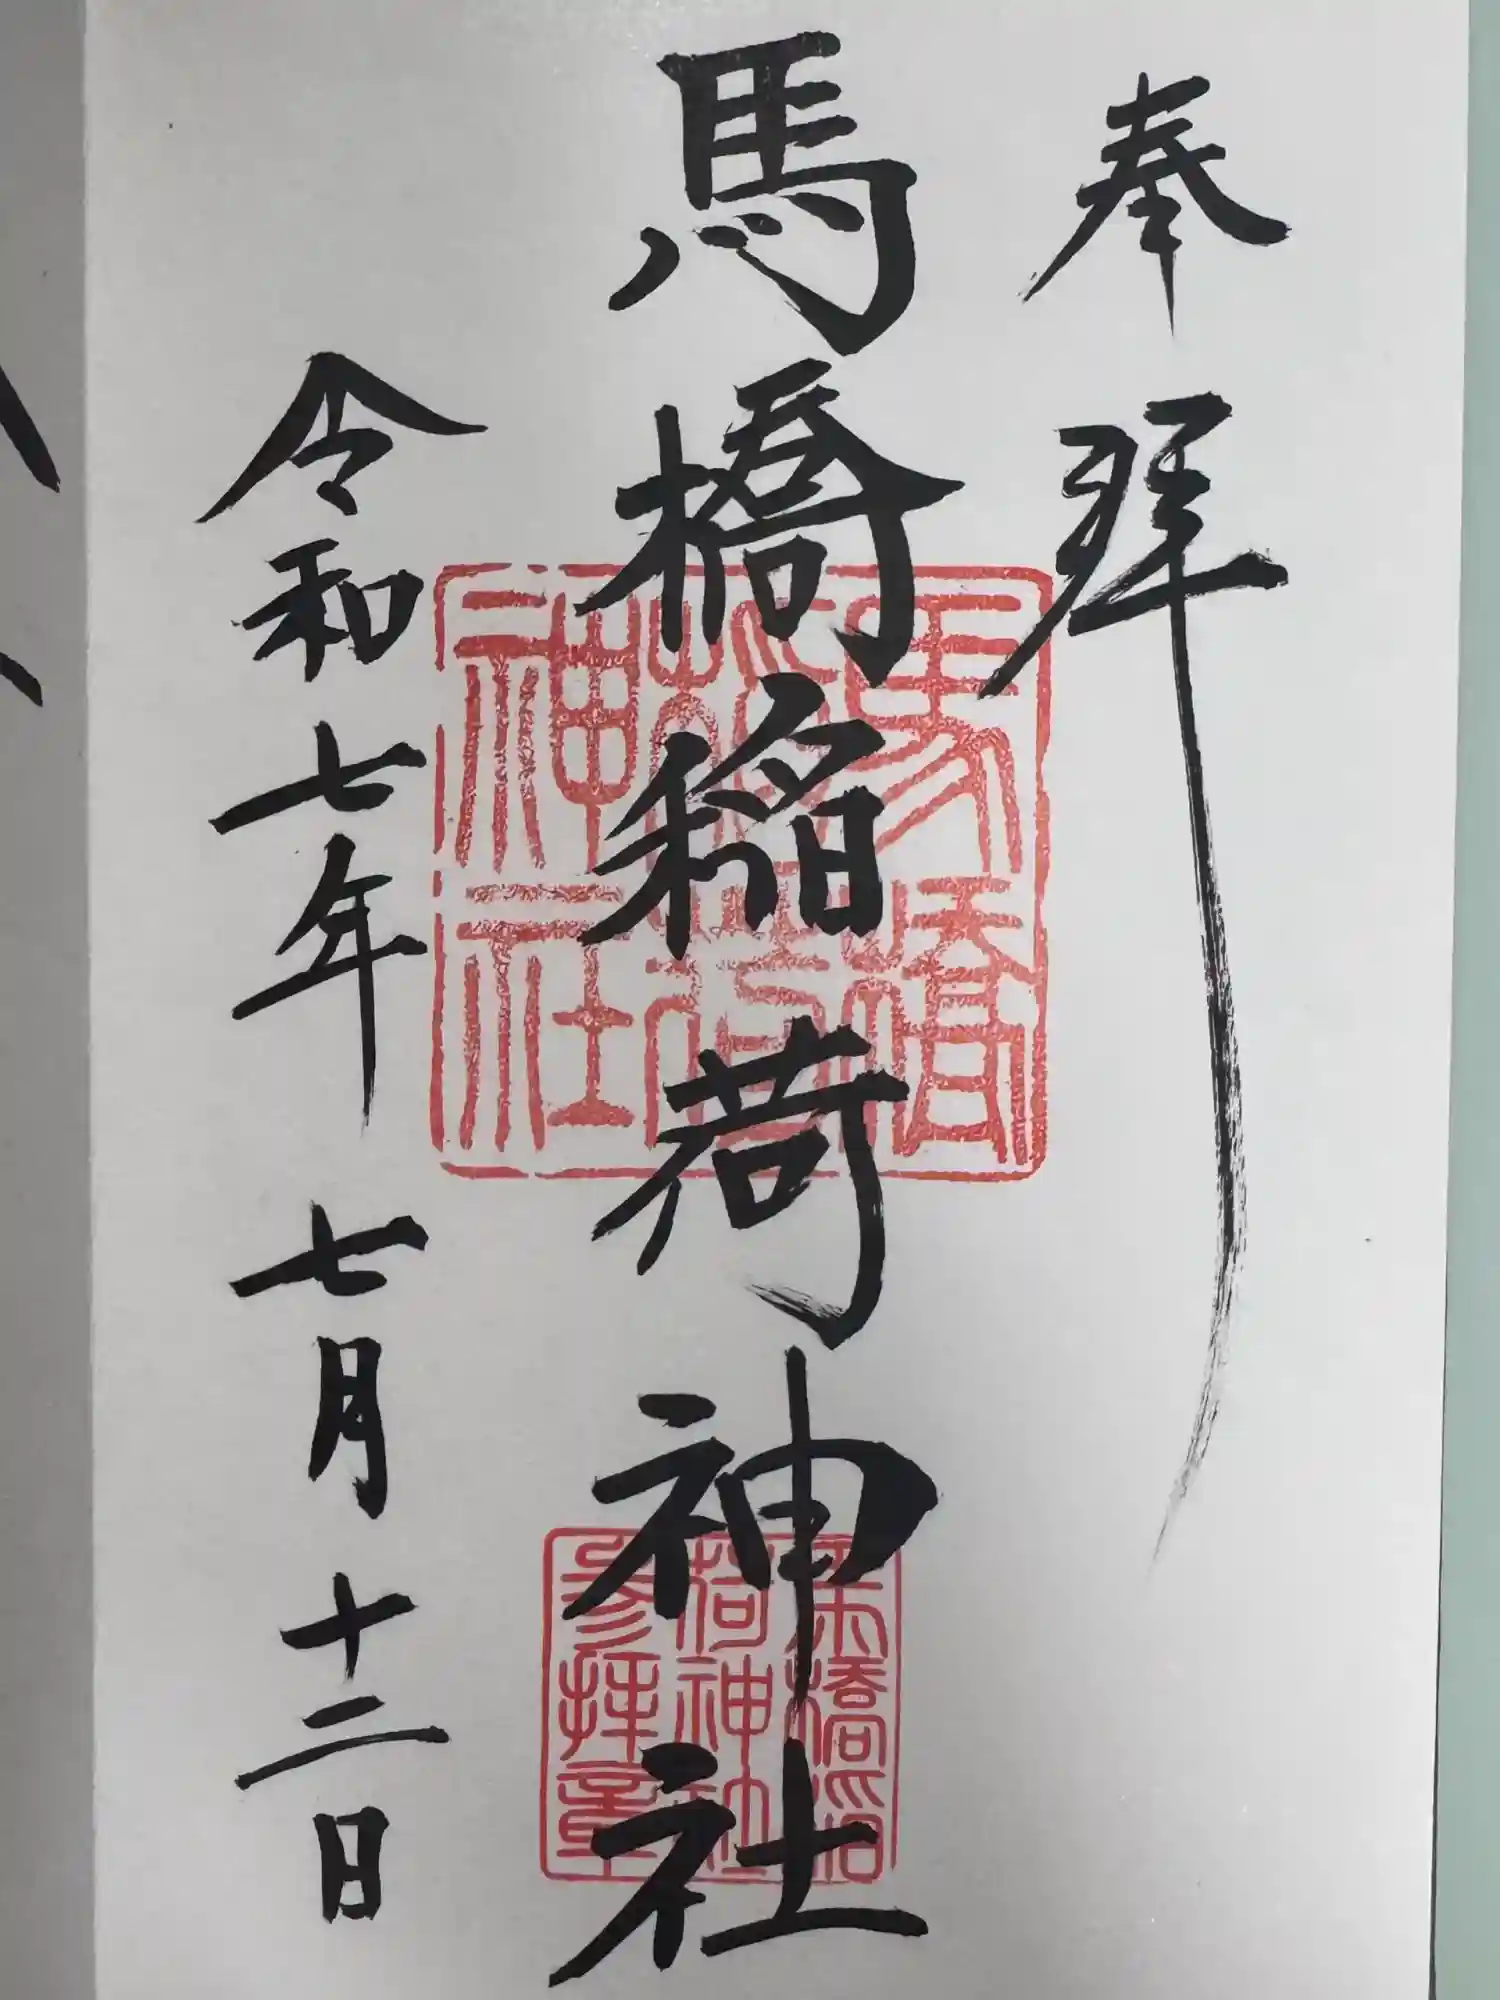 奉拝
馬橋稲荷神社
馬橋
稲荷
神社
馬橋稲
荷神社
参拝章
令和七年 七月十二日